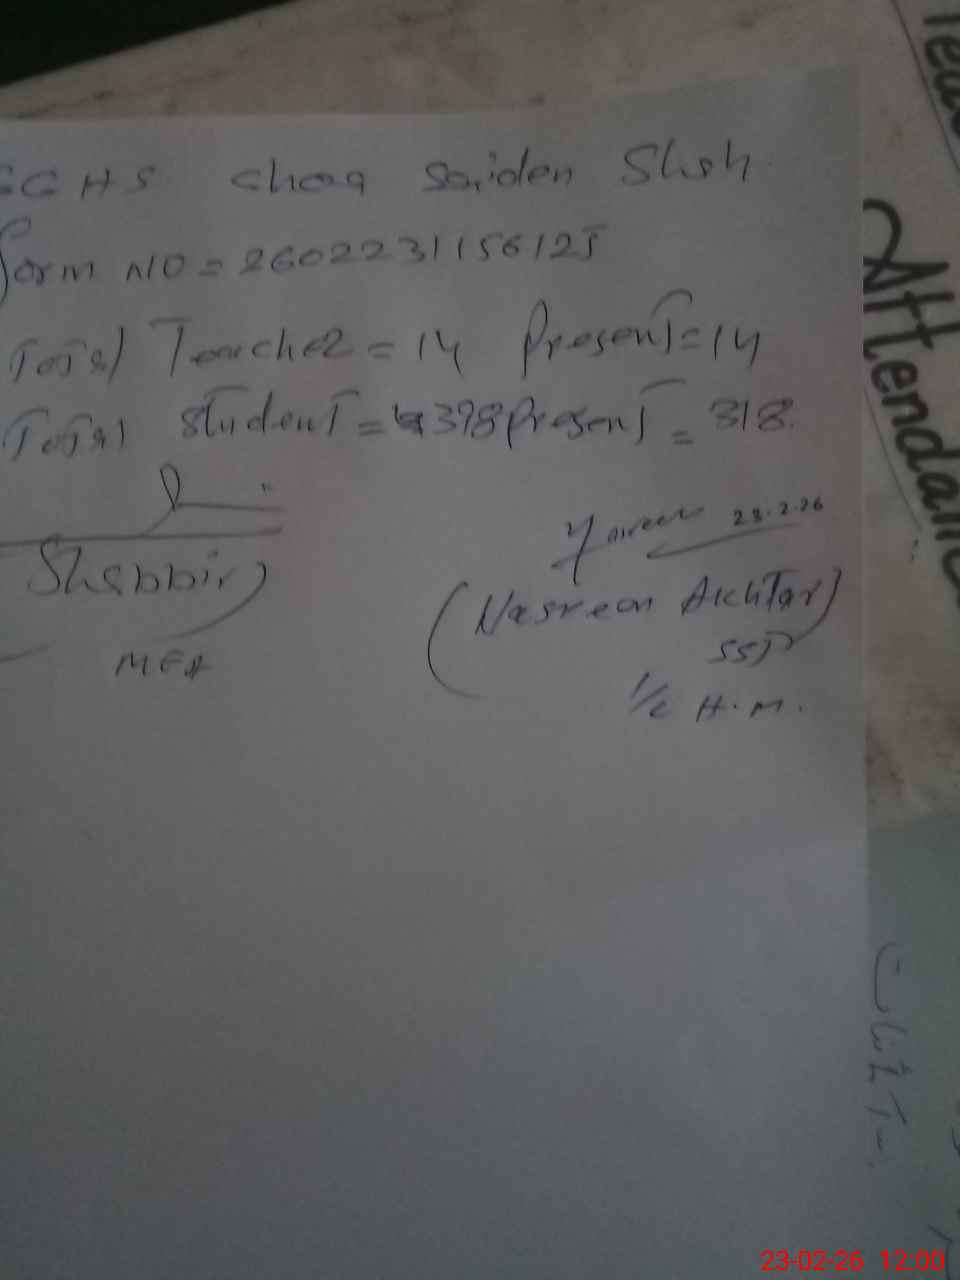 GGHS Choa Saiden Shah
Form NO = 2602231156125
Total Teacher = 14 Present = 14
Total Student = 398 Present = 318
23.2.26
Shabbir)
(Nasreen Akhtar)
MEA
SST
I/C H.M.
Attendance
23-02-26 12:00